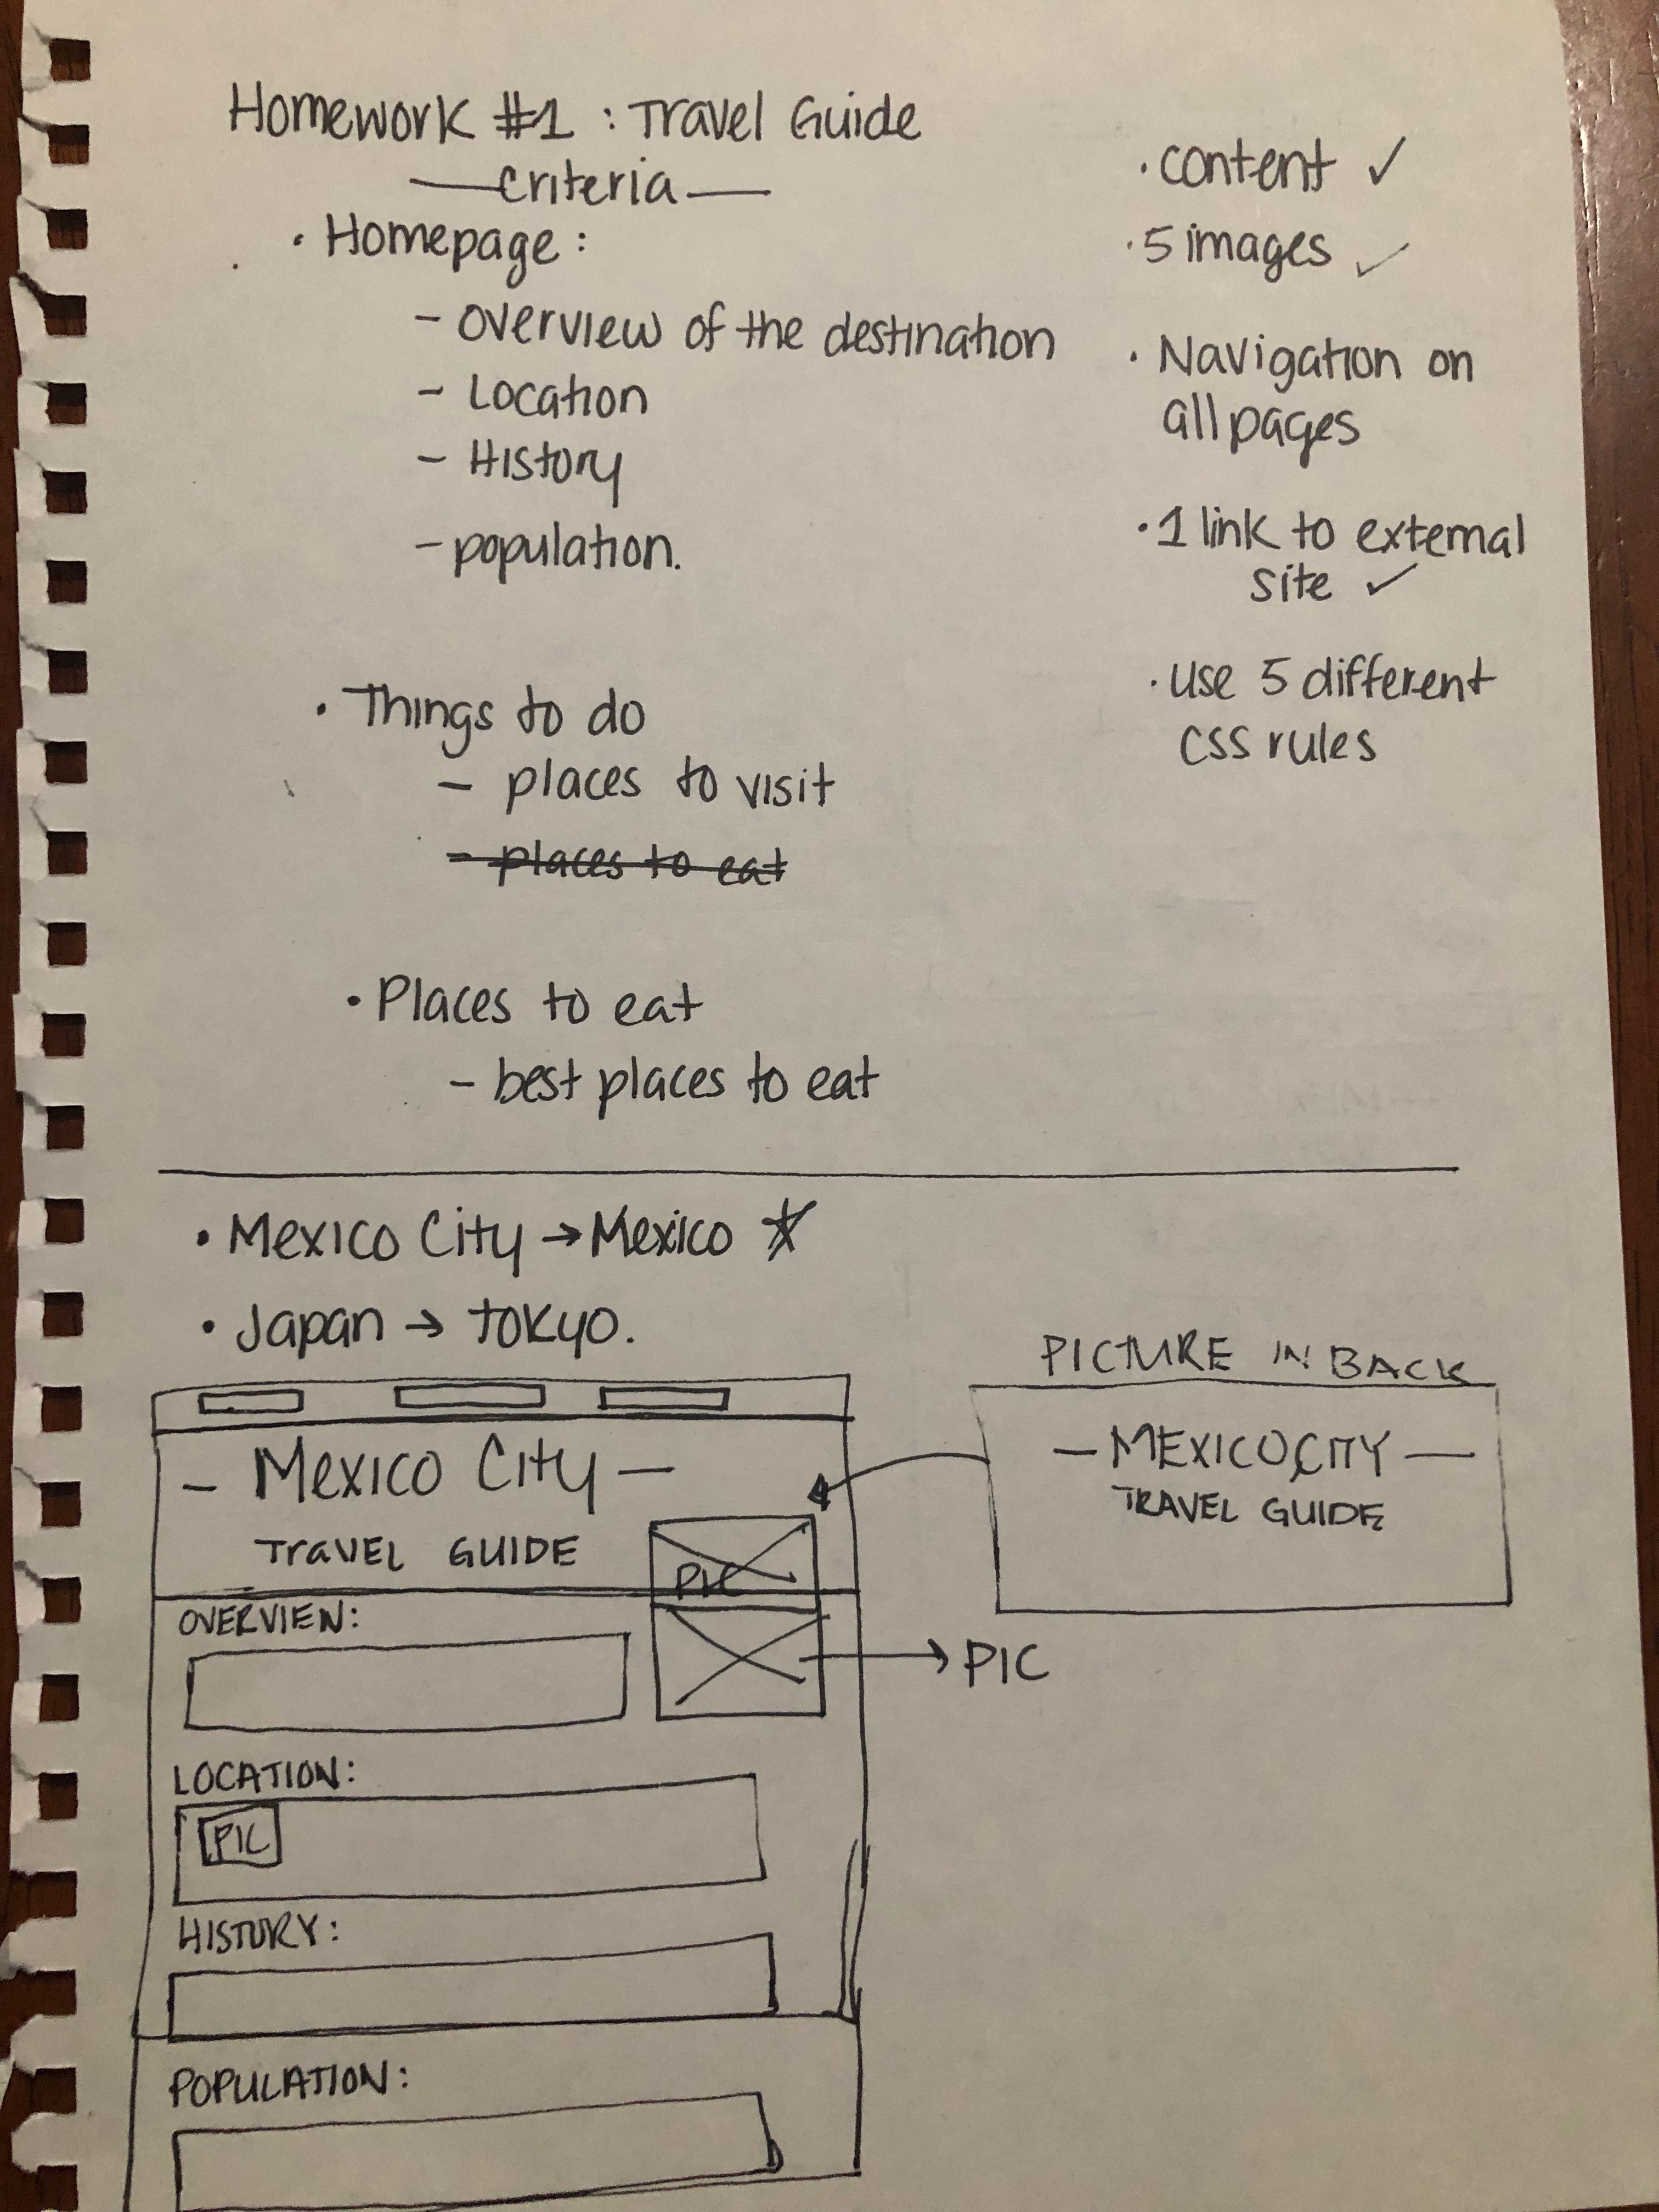 Homework #1 : Travel Guide
—criteria—
• Homepage :
– overview of the destination
– Location
– History
– population.
• Things to do
– places to visit
– places to eat
• Places to eat
– best places to eat
• content ✓
• 5 images ✓
• Navigation on
all pages
• 1 link to external
site ✓
• use 5 different
CSS rules
• Mexico City → Mexico ☆
• Japan → Tokyo.
– Mexico City –
TRAVEL GUIDE
PIC
OVERVIEW:
→ PIC
LOCATION:
PIC
HISTORY:
POPULATION:
PICTURE IN BACK
– MEXICO CITY –
TRAVEL GUIDE